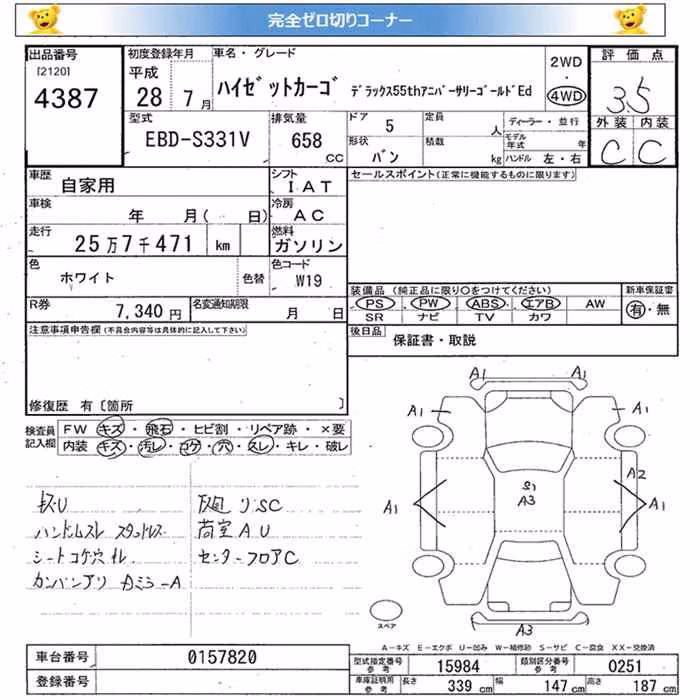 完全ゼロ切りコーナー
出品番号 初度登録年月 車名・グレード 2WD 評価点
[2120] 平成 ・
4387 28 7月 ハイゼットカーゴ デラックス55thアニバーサリーゴールドEd 4WD 3.5
型式 排気量 ドア 5 定員 人 ディーラー・並行 外装 内装
EBD-S331V 658 CC 形状 バン 積載 kg モデル年式 年 C C
ハンドル 左・右
車歴 自家用 シフト IAT セールスポイント(正常に機能するものに限ります)
車検 年 月( 日) 冷房 AC
走行 25万7千471 km 燃料 ガソリン
色 ホワイト 色替 色コード W19
装備品 (純正品に限り○をつけてください) 新車保証書
R券 7,340円 名変通知期限 月 日 PS PW ABS エアB AW 有・無
SR ナビ TV カワ
注意事項申告欄(不具合内容等は具体的に記入して下さい) 後日品 保証書・取説
修復歴 有〔箇所 〕
検査員記入欄 FW キズ・飛石・ヒビ割・リペア跡・×要
内装 キズ・汚レ・コゲ・穴・スレ・キレ・破レ
A1 A1
A1 A1
S1 A2
A1 A3 A1
A3
ハンドルスレ スタッドレス 荷室AU
シートコゲ穴 センターフロアC
カンバンアリ
スペア
A-キズ E-エクボ U-凹み W-補修跡 S-サビ C-腐食 XX-交換済
車台番号 0157820 型式指定番号 参考 15984 類別区分番号 参考 0251
登録番号 車庫証明用 参考 長さ 339 cm 幅 147 cm 高さ 187 cm